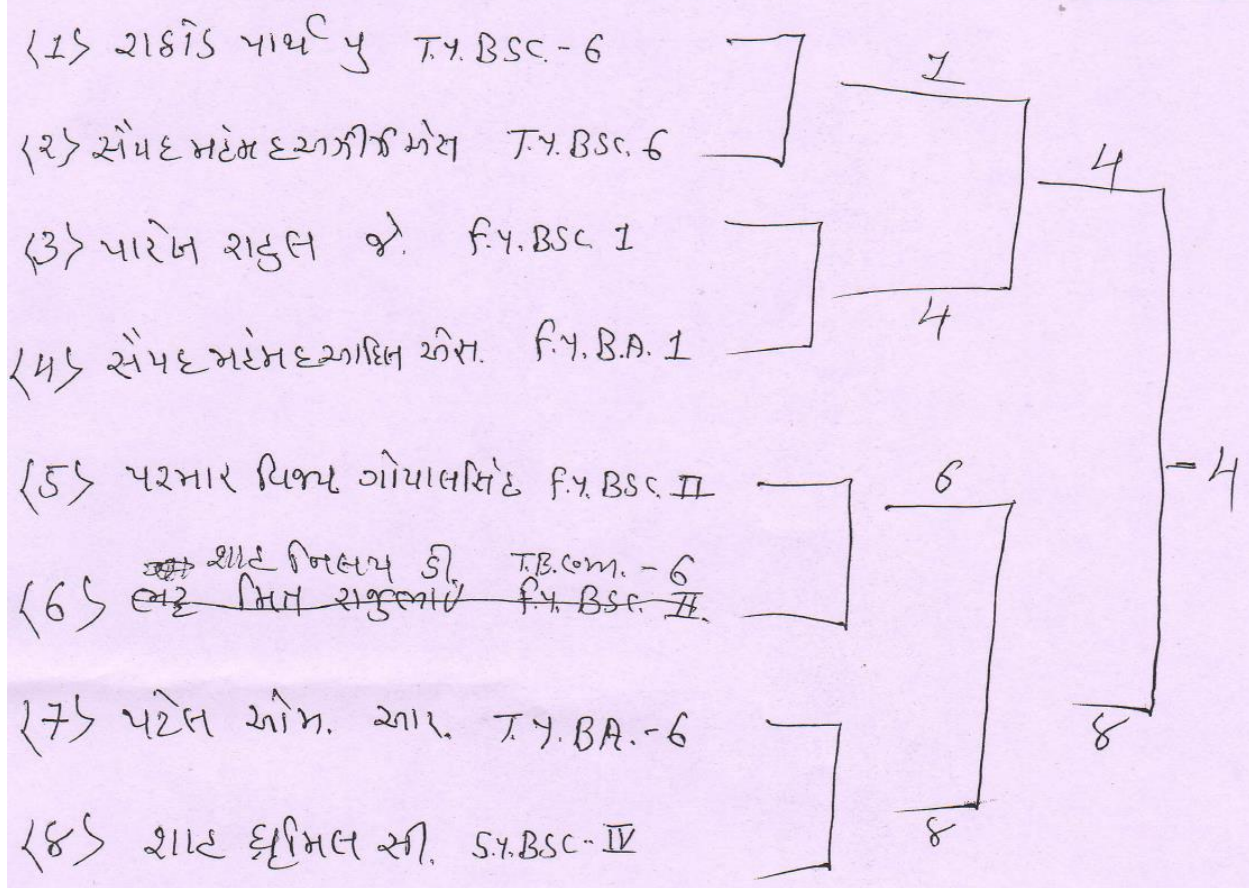 (1) રાઠોડ પાર્થ પુ T.Y. BSC. - 6
(2) સૈયદ મહંમદઅઝીઝ એસ T.Y. BSC. 6
(3) પારેખ રાહુલ જે. F.Y. BSC 1
(4) સૈયદ મહંમદઆદિલ એસ. F.Y. B.A. 1
(5) પરમાર વિજય ગોપાલસિંહ F.Y. BSC. II
શાહ મિલય ડી. T.B.Com. - 6
(6) મિત રાજુભાઈ F.Y. BSC. II
(7) પટેલ ઓમ. આર. T.Y. BA. - 6
(8) શાહ ધ્રુમિલ સી. S.Y. BSC - IV
1
4
4
6
8
8
- 4